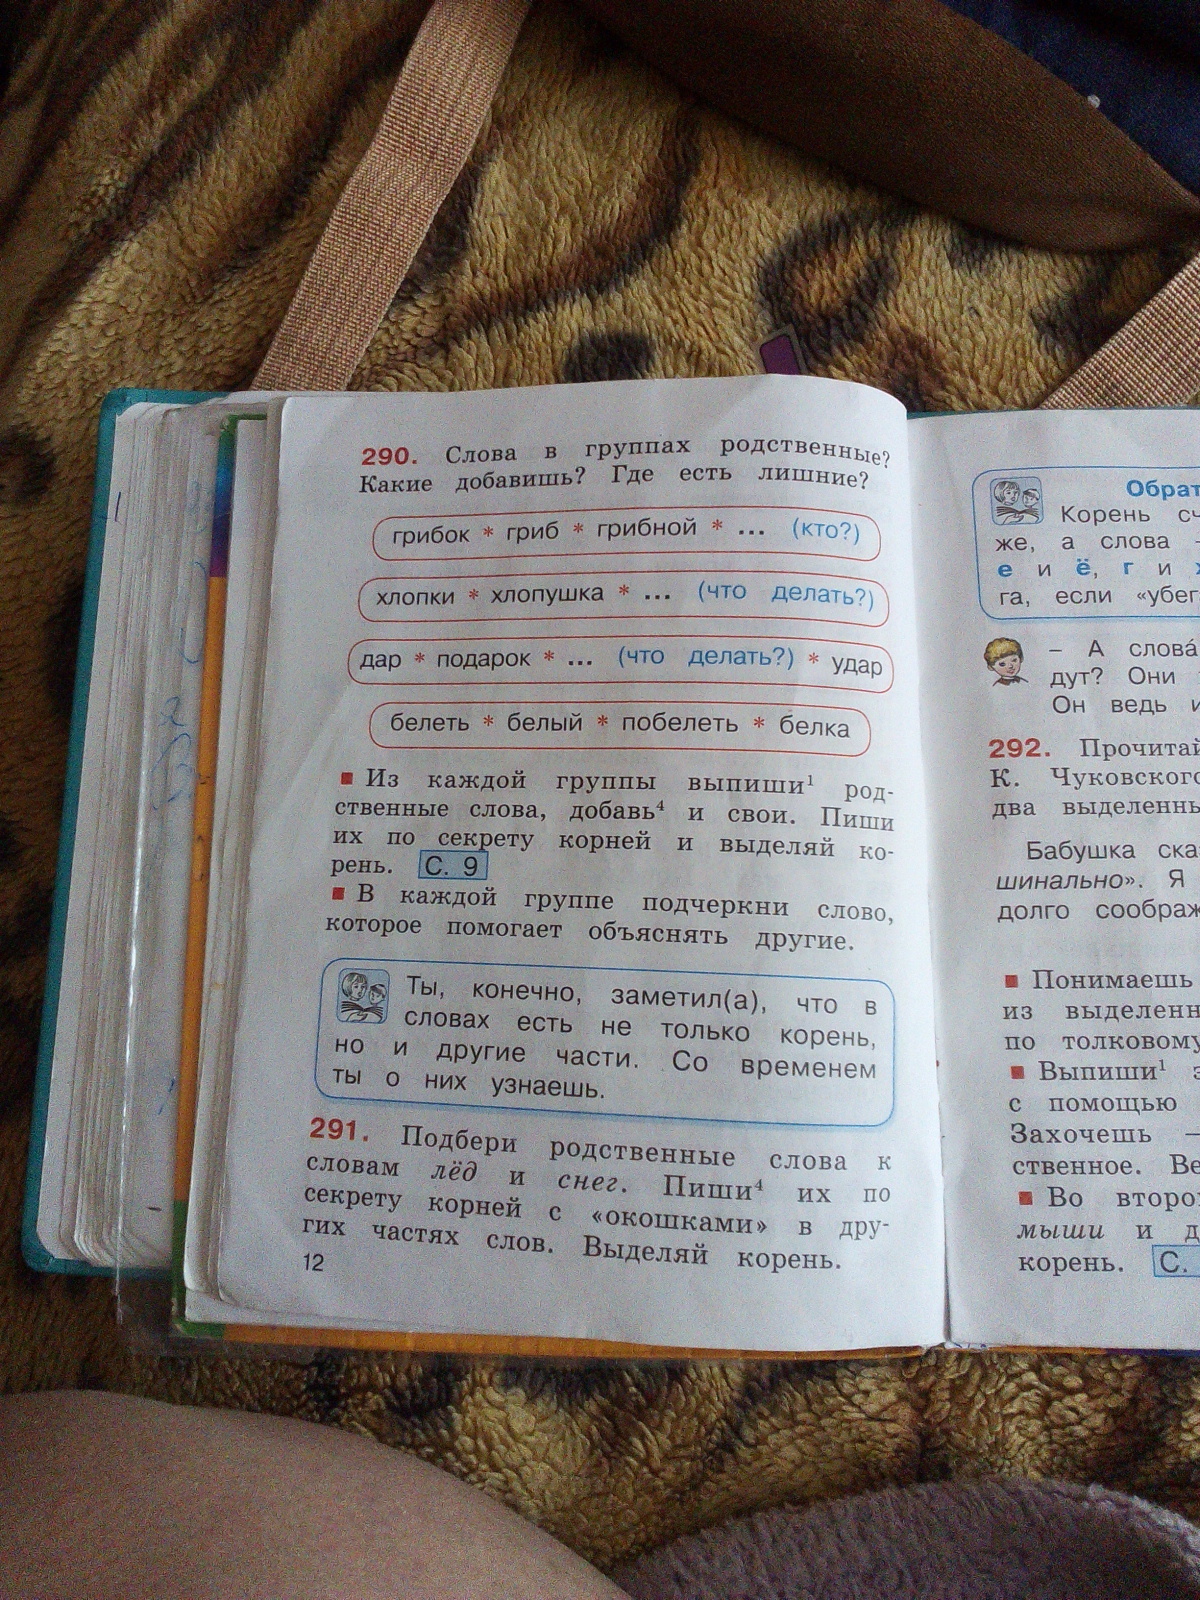 290. Слова в группах родственные?
Какие добавишь? Где есть лишние?
грибок * гриб * грибной * ... (кто?)
хлопки * хлопушка * ... (что делать?)
дар * подарок * ... (что делать?) * удар
белеть * белый * побелеть * белка
▪ Из каждой группы выпиши¹ род-
ственные слова, добавь⁴ и свои. Пиши
их по секрету корней и выделяй ко-
рень. С. 9
▪ В каждой группе подчеркни слово,
которое помогает объяснять другие.
Ты, конечно, заметил(а), что в
словах есть не только корень,
но и другие части. Со временем
ты о них узнаешь.
291. Подбери родственные слова к
словам лёд и снег. Пиши⁴ их по
секрету корней с «окошками» в дру-
гих частях слов. Выделяй корень.
12
Обрат
Корень сч
же, а слова –
е и ё, г и
га, если «убег
– А слова́
дут? Они
Он ведь и
292. Прочитай
К. Чуковского
два выделенны
Бабушка ска
шинально». Я
долго соображ
▪ Понимаешь
из выделенн
по толковому
▪ Выпиши¹ з
с помощью
Захочешь –
ственное. Ве
▪ Во второ
мыши и д
корень. С.